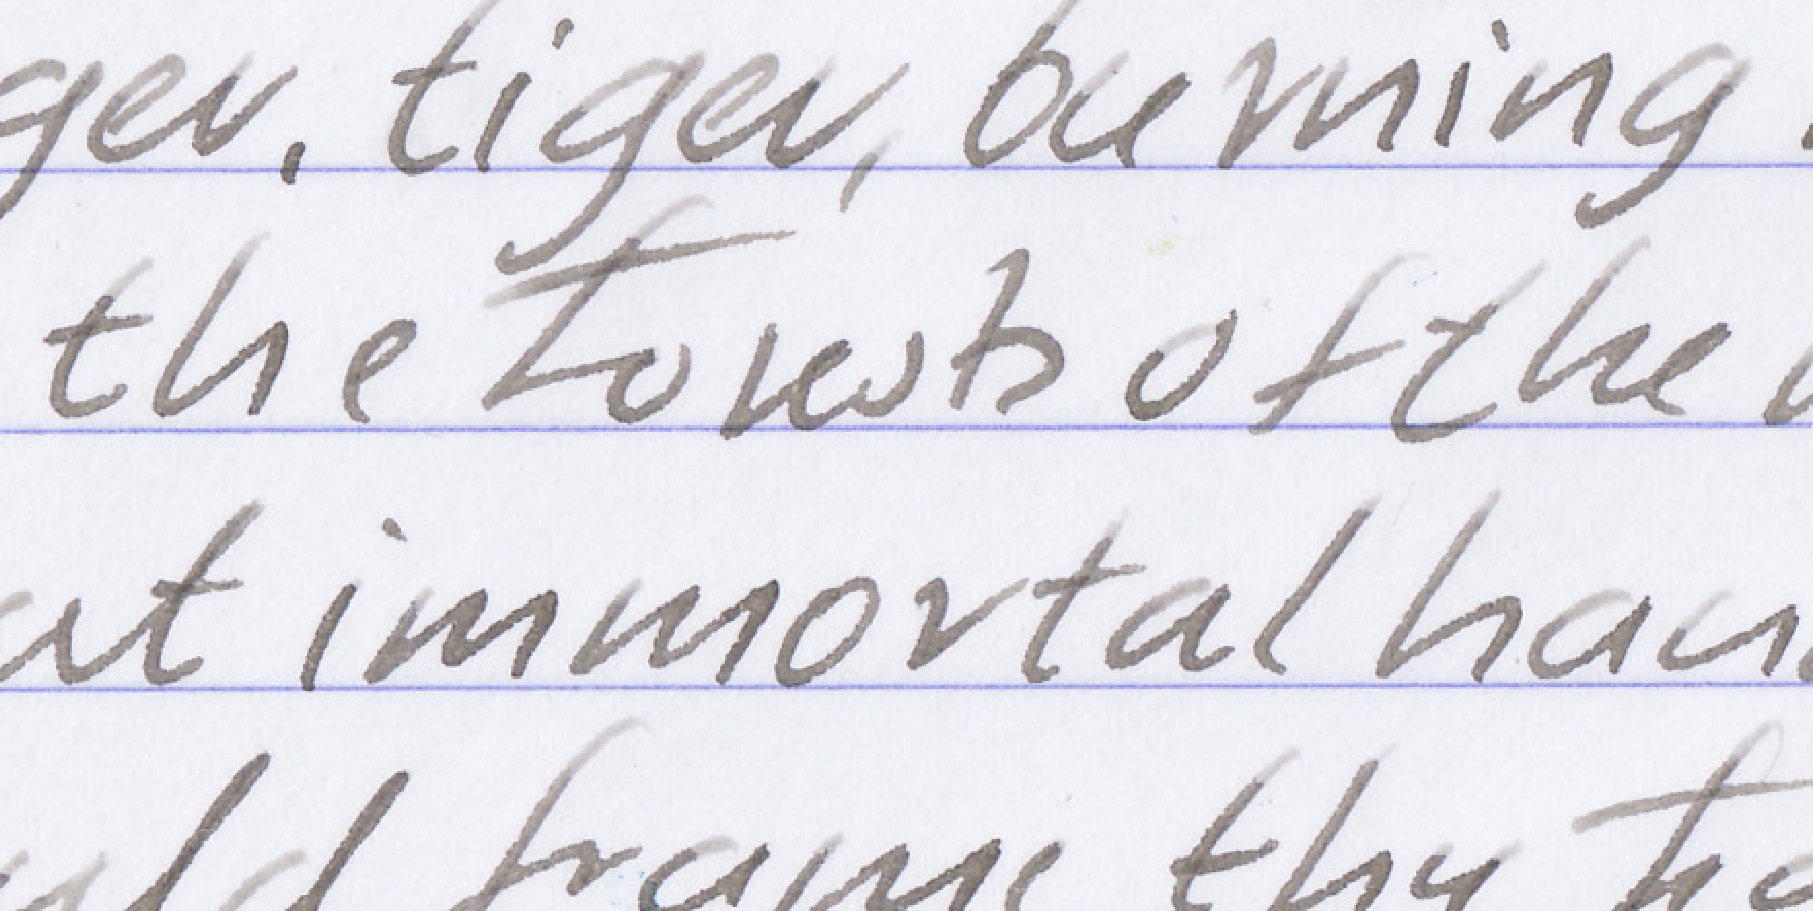 ger, tiger, burning
the forests of the
at immortal han
uld frame thy fe